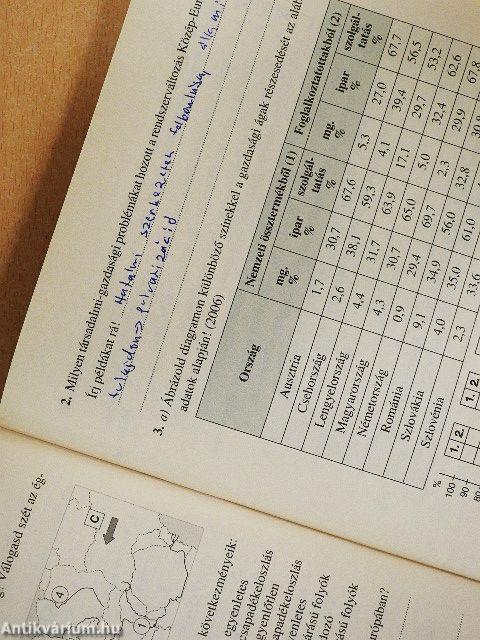 2. Milyen társadalmi-gazdasági problémákat hozott a rendszerváltozás Közép-Eur
Írj példákat rá! Hatalmi szerkezetek felbomlása, állami
tulajdon -> privatizáció
3. a) Ábrázold diagramon különböző színekkel a gazdasági ágak részesedését az aláb
adatok alapján! (2006)
Ország Nemzeti össztermékből (1) Foglalkoztatottakból (2)
mg. % ipar % szolgál-tatás % mg. % ipar % szolgál-tatás %
Ausztria 1,7 30,7 67,6 5,3 27,0 67,7
Csehország 2,6 38,1 59,3 4,1 39,4 56,5
Lengyelország 4,4 31,7 63,9 17,1 29,7 53,2
Magyarország 4,3 30,7 65,0 5,0 32,4 62,6
Németország 0,9 29,4 69,7 2,3 29,9 67,8
Románia 9,1 34,9 56,0 32,8
Szlovákia 4,0 35,0 61,0
Szlovénia 2,3 33,6
% 1. 2. 1. 2.
100
90
80
Válogasd szét az ég-
C
4
1
következményeik:
egyenletes
csapadékeloszlás
egyenlőtlen
apadékeloszlás
enletes
árású folyók
ozó
ású folyók
ópában?
Antikvárium.hu